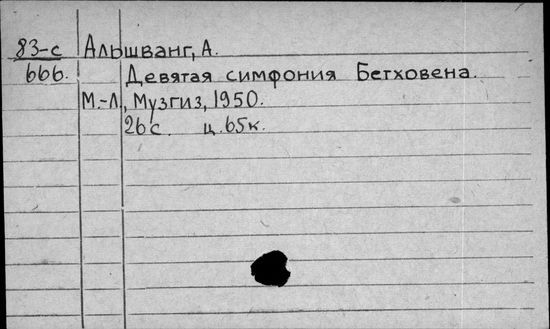 83-с Альшванг, А.
666. Девятая симфония Бетховена.
М.-Л., Музгиз, 1950.
26 с. ц. 65 к.